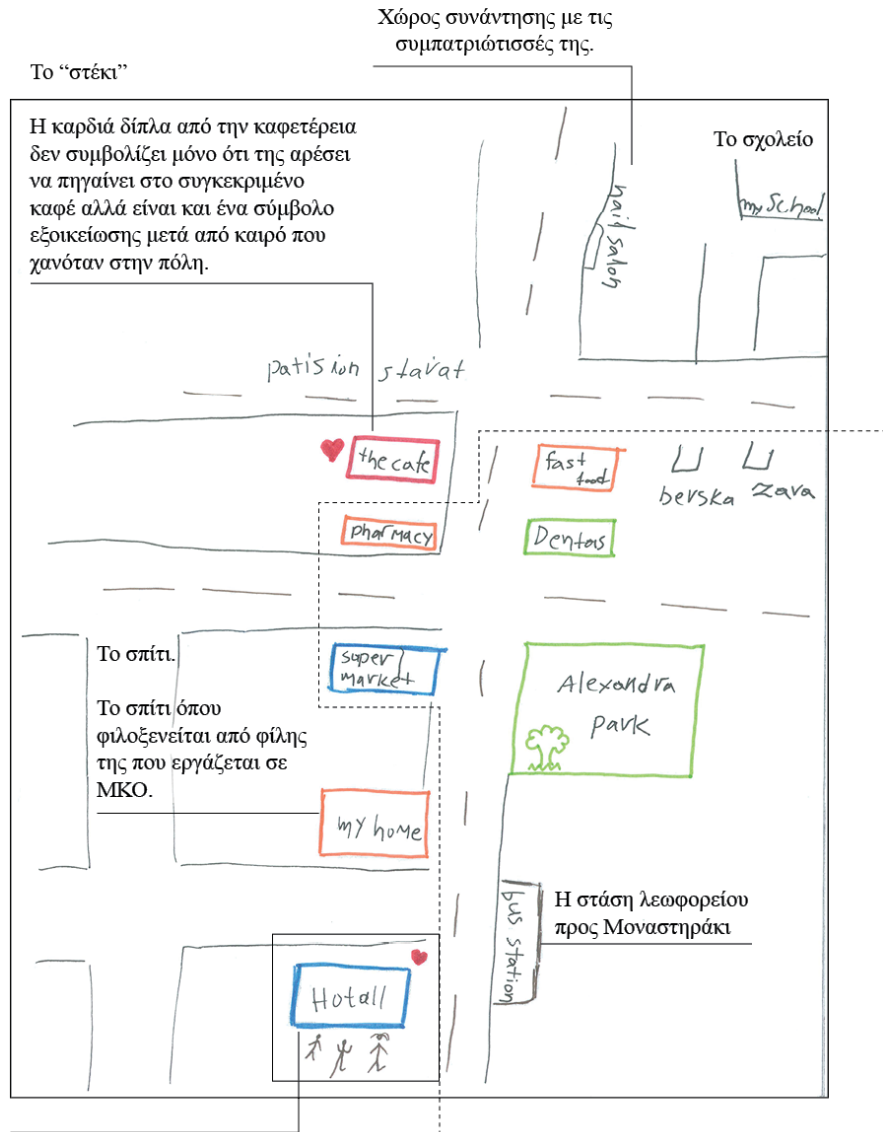 Χώρος συνάντησης με τις
συμπατριώτισσές της.
Το “στέκι”
Η καρδιά δίπλα από την καφετέρεια
δεν συμβολίζει μόνο ότι της αρέσει
να πηγαίνει στο συγκεκριμένο
καφέ αλλά είναι και ένα σύμβολο
εξοικείωσης μετά από καιρό που
χανόταν στην πόλη.
Το σχολείο
my School
nail salon
patision stavat
the cafe
fast
food
berska
zara
pharmacy
Dentas
Το σπίτι.
Το σπίτι όπου
φιλοξενείται από φίλης
της που εργάζεται σε
ΜΚΟ.
super
market
Alexandra
park
my home
bus station
Η στάση λεωφορείου
προς Μοναστηράκι
Hotall